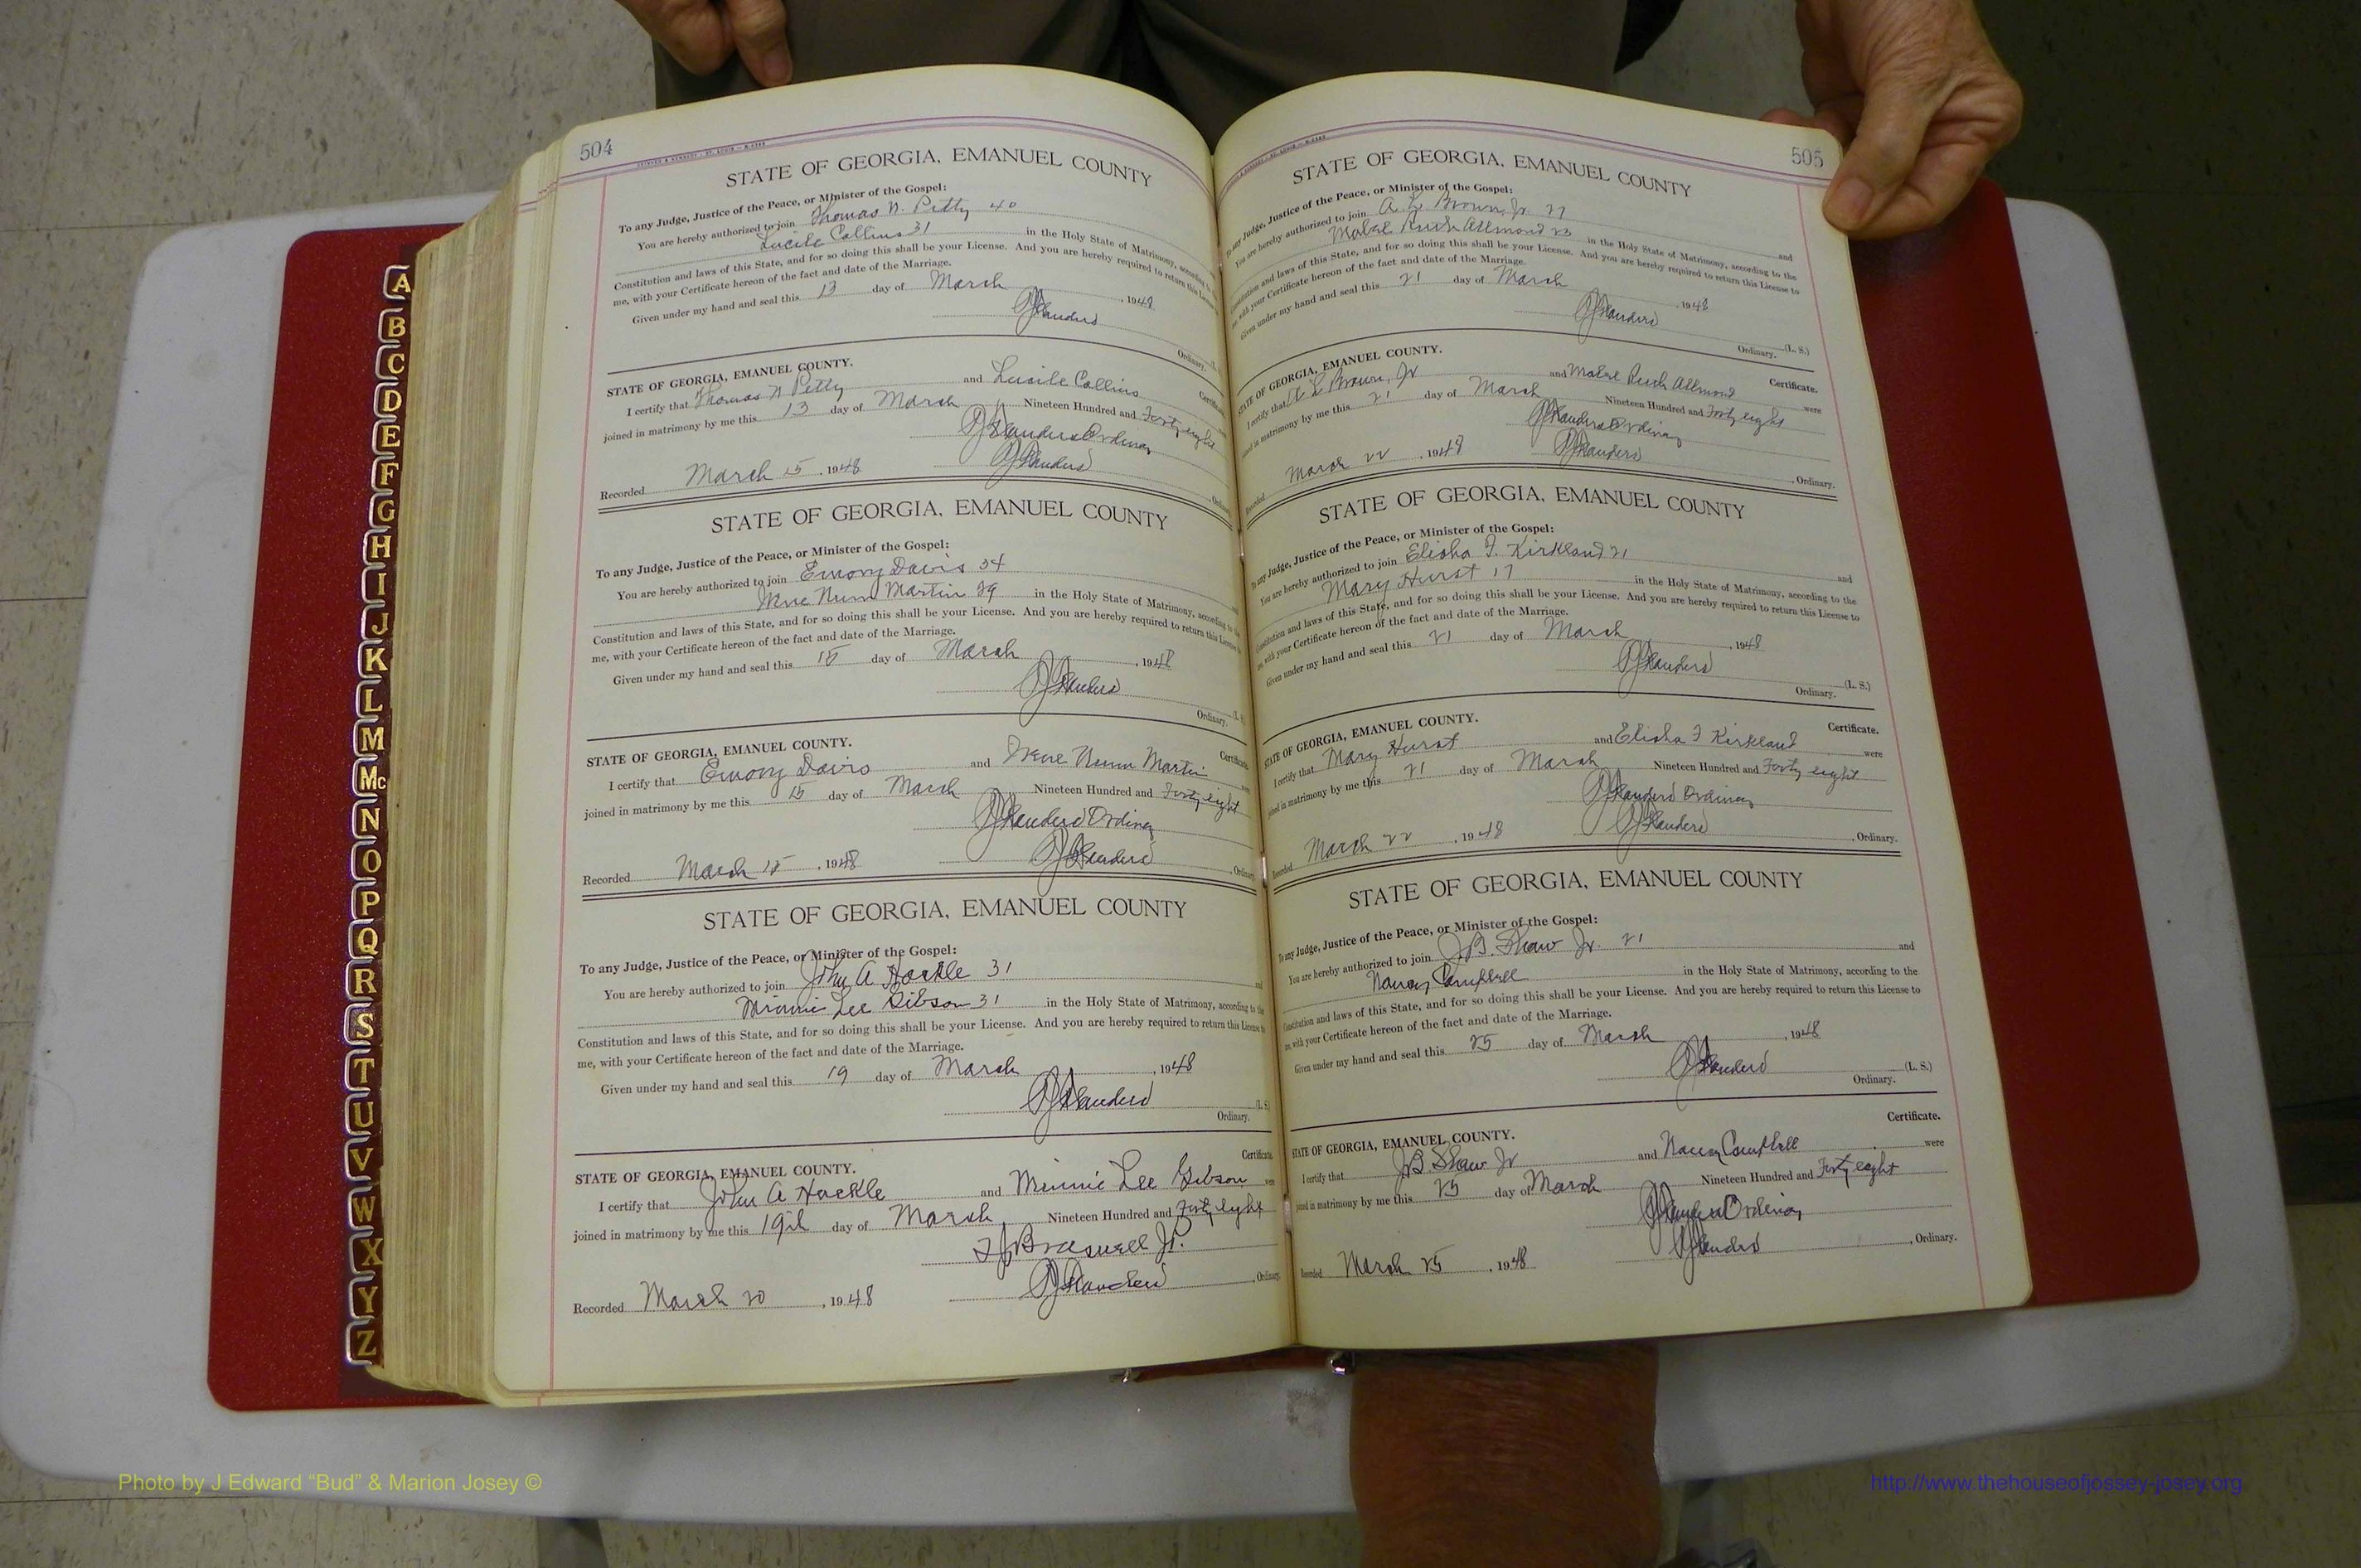 504
STATE OF GEORGIA, EMANUEL COUNTY
To any Judge, Justice of the Peace, or Minister of the Gospel:
You are hereby authorized to join Thomas N. Petty 40
Lucile Collins 31 in the Holy State of Matrimony, according to
Constitution and laws of this State, and for so doing this shall be your License. And you are hereby required to return this
me, with your Certificate hereon of the fact and date of the Marriage.
Given under my hand and seal this 13 day of March, 1948
Ordinary.
STATE OF GEORGIA, EMANUEL COUNTY.
I certify that Thomas N Petty and Lucile Collins
joined in matrimony by me this 13 day of March Nineteen Hundred and Forty eight
Ordinary
Recorded March 15, 1948
STATE OF GEORGIA, EMANUEL COUNTY
To any Judge, Justice of the Peace, or Minister of the Gospel:
You are hereby authorized to join Emory Davis 34
Irene Nunn Martin 29 in the Holy State of Matrimony, according to the
Constitution and laws of this State, and for so doing this shall be your License. And you are hereby required to return this License
me, with your Certificate hereon of the fact and date of the Marriage.
Given under my hand and seal this 15 day of March, 1948
Ordinary. (L. S.
STATE OF GEORGIA, EMANUEL COUNTY. Certificate
I certify that Emory Davis and Irene Nunn Martin
joined in matrimony by me this 15 day of March Nineteen Hundred and Forty eight
Ordinary
Recorded March 15, 1948
STATE OF GEORGIA, EMANUEL COUNTY
To any Judge, Justice of the Peace, or Minister of the Gospel:
You are hereby authorized to join John A Hackle 31 and
Minnie Lee Gibson 31 in the Holy State of Matrimony, according to the
Constitution and laws of this State, and for so doing this shall be your License. And you are hereby required to return this License to
me, with your Certificate hereon of the fact and date of the Marriage.
Given under my hand and seal this 19 day of March, 1948
(L. S.
Ordinary.
Certificate.
STATE OF GEORGIA, EMANUEL COUNTY.
I certify that John A Hackle and Minnie Lee Gibson were
joined in matrimony by me this 19th day of March Nineteen Hundred and Forty eight
Braswell J.P.
Recorded March 20, 1948
505
STATE OF GEORGIA, EMANUEL COUNTY
To any Judge, Justice of the Peace, or Minister of the Gospel:
You are hereby authorized to join A. L. Brown, Jr. 27 and
Mabel Ruth Allmond 23 in the Holy State of Matrimony, according to the
Constitution and laws of this State, and for so doing this shall be your License. And you are hereby required to return this License to
me, with your Certificate hereon of the fact and date of the Marriage.
Given under my hand and seal this 21 day of March, 1948
(L. S.)
Ordinary.
STATE OF GEORGIA, EMANUEL COUNTY. Certificate.
I certify that A L Brown, Jr and Mabel Ruth Allmond were
joined in matrimony by me this 21 day of March Nineteen Hundred and Forty eight
Ordinary
Recorded March 22, 1948, Ordinary.
STATE OF GEORGIA, EMANUEL COUNTY
To any Judge, Justice of the Peace, or Minister of the Gospel:
You are hereby authorized to join Elisha F. Kirkland 21 and
Mary Hurst 17 in the Holy State of Matrimony, according to the
Constitution and laws of this State, and for so doing this shall be your License. And you are hereby required to return this License to
me, with your Certificate hereon of the fact and date of the Marriage.
Given under my hand and seal this 21 day of March, 1948
(L. S.)
Ordinary.
STATE OF GEORGIA, EMANUEL COUNTY. Certificate.
I certify that Mary Hurst and Elisha F Kirkland were
joined in matrimony by me this 21 day of March Nineteen Hundred and Forty eight
Ordinary
Recorded March 22, 1948, Ordinary.
STATE OF GEORGIA, EMANUEL COUNTY
To any Judge, Justice of the Peace, or Minister of the Gospel:
You are hereby authorized to join J.B. Shaw Jr. 21 and
Nancy Campbell in the Holy State of Matrimony, according to the
Constitution and laws of this State, and for so doing this shall be your License. And you are hereby required to return this License to
me, with your Certificate hereon of the fact and date of the Marriage.
Given under my hand and seal this 25 day of March, 1948
(L. S.)
Ordinary.
Certificate.
STATE OF GEORGIA, EMANUEL COUNTY.
I certify that J.B. Shaw Jr and Nancy Campbell were
joined in matrimony by me this 25 day of March Nineteen Hundred and Forty eight
Ordinary
Recorded March 25, 1948, Ordinary.
A
B
C
D
E
F
G
H
I
J
K
L
M
Mc
N
O
P
Q
R
S
T
U
V
W
X
Y
Z
Photo by J Edward “Bud” & Marion Josey ©
http://www.thehouseofjossey-josey.org